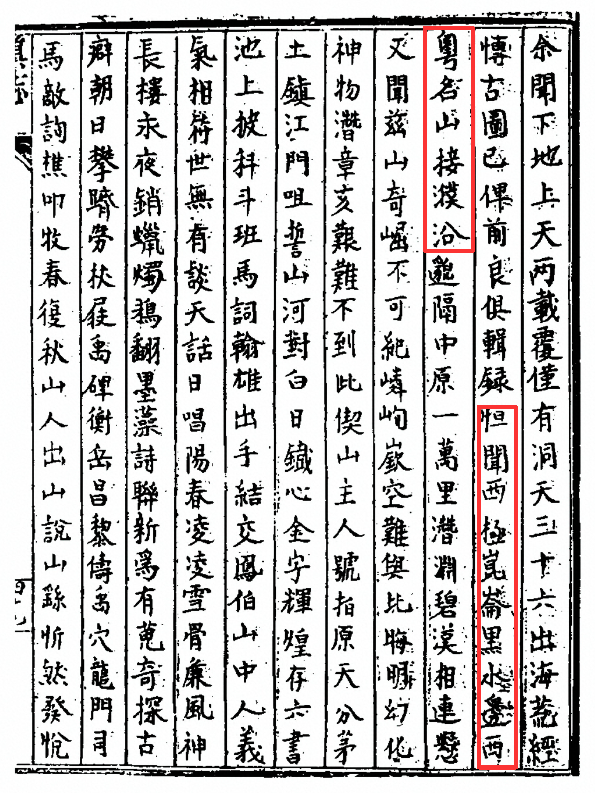 余聞下地上天兩載覆僅有洞天三十六出海荒經
博古圖已俾前良俱輯録恒聞西極崑崙黑水邊西
粵名山接濮沿邈隔中原一萬里潛淵碧漠相連懸
又聞茲山奇崛不可紀嶙峋嶔空難與比晦明幻化
神物潛章亥艱難不到此偰山主人號拍原天分茅
土鎮江門咀誓山河對白日鐡心金字輝煌存六書
池上披科斗班馬詞翰雄出手結交鳳伯山中人義
氣相符世無有談天話日唱陽春凌凌雪骨兼風神
長摟永夜銷蠟燭鵝翻墨藻詩聯新爲有蒐奇探古
癖朝日攀躋勞杖屐禹碑衡岳昌黎儔禹穴龍門司
馬敵詢樵叩牧春復秋山人出山說山繇忻然發悅